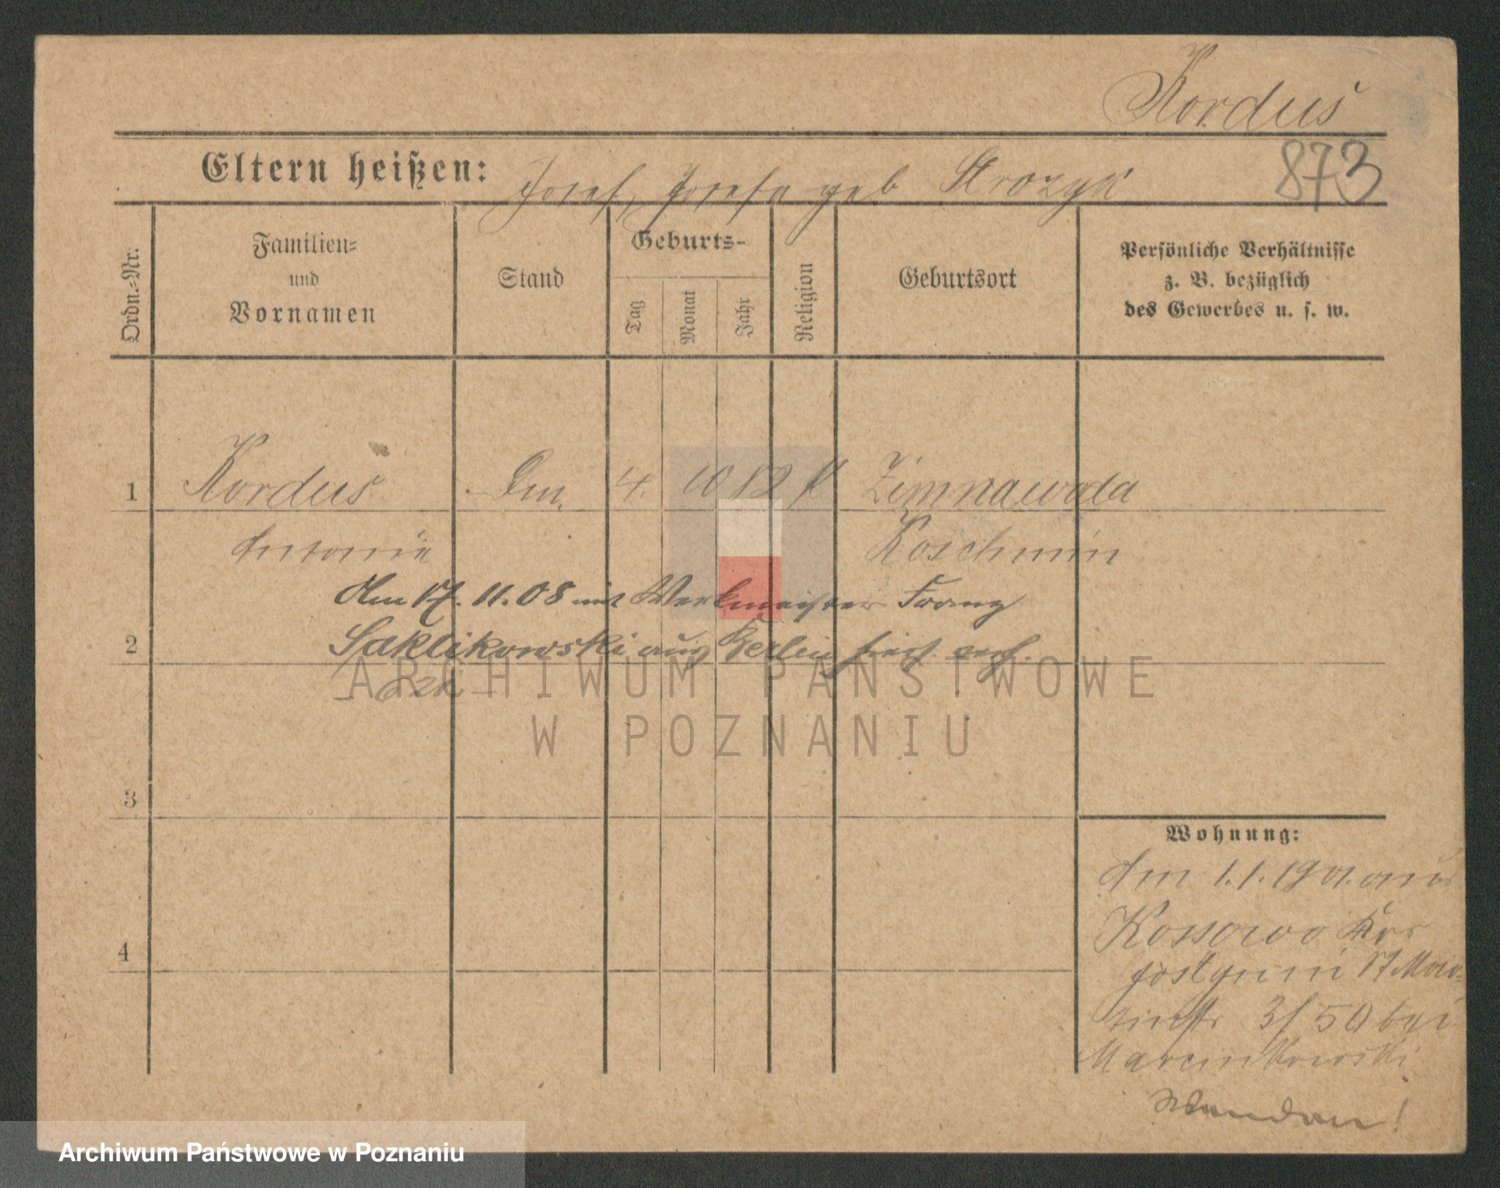 Kordus
873
Eltern heißen: Josef, Josefa geb Strozyk
Ordn.-Nr.
Familien-
und
Vornamen
Stand
Geburts-
Tag
Monat
Jahr
Religion
Geburtsort
Persönliche Verhältnisse
z. B. bezüglich
des Gewerbes u. s. w.
1 Kordus 4. 10 82 k Zimnawoda
Antonie Koschmin
Am 17. 11. 08 mit Werkmeister Franz
2 Saklikowski aus Berlin
ARCHIWUM PAŃSTWOWE
W POZNANIU
3
4
Wohnung:
Am 1.1.1901. aus
Kossowo Krs
Gostyn in St Mar-
tinstr 3/50 bei
Marcinkowski
Wenden!
Archiwum Państwowe w Poznaniu